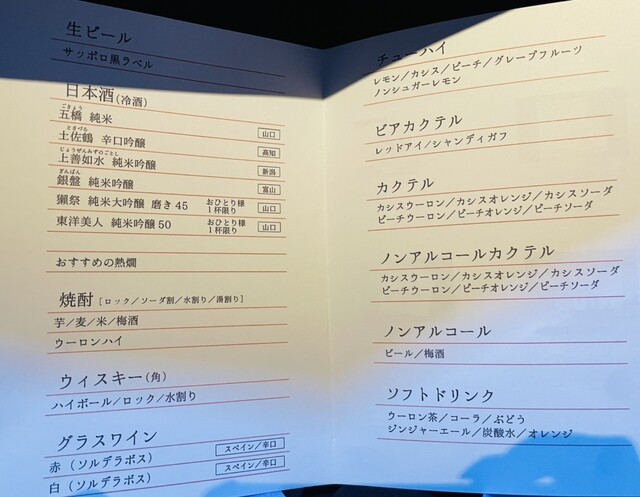 生ビール
サッポロ黒ラベル
日本酒(冷酒)
ごきょう
五橋 純米 山口
とさづる
土佐鶴 辛口吟醸 高知
じょうぜんみずのごとし
上善如水 純米吟醸 新潟
ぎんばん
銀盤 純米吟醸 富山
獺祭 純米大吟醸 磨き45 おひとり様1杯限り 山口
東洋美人 純米吟醸50 おひとり様1杯限り 山口
おすすめの熱燗
焼酎[ロック/ソーダ割/水割り/湯割り]
芋/麦/米/梅酒
ウーロンハイ
ウィスキー(角)
ハイボール/ロック/水割り
グラスワイン
赤(ソルデラボス) スペイン/辛口
白(ソルデラボス) スペイン/辛口
チューハイ
レモン/カシス/ピーチ/グレープフルーツ
ノンシュガーレモン
ビアカクテル
レッドアイ/シャンディガフ
カクテル
カシスウーロン/カシスオレンジ/カシスソーダ
ピーチウーロン/ピーチオレンジ/ピーチソーダ
ノンアルコールカクテル
カシスウーロン/カシスオレンジ/カシスソーダ
ピーチウーロン/ピーチオレンジ/ピーチソーダ
ノンアルコール
ビール/梅酒
ソフトドリンク
ウーロン茶/コーラ/ぶどう
ジンジャーエール/炭酸水/オレンジ